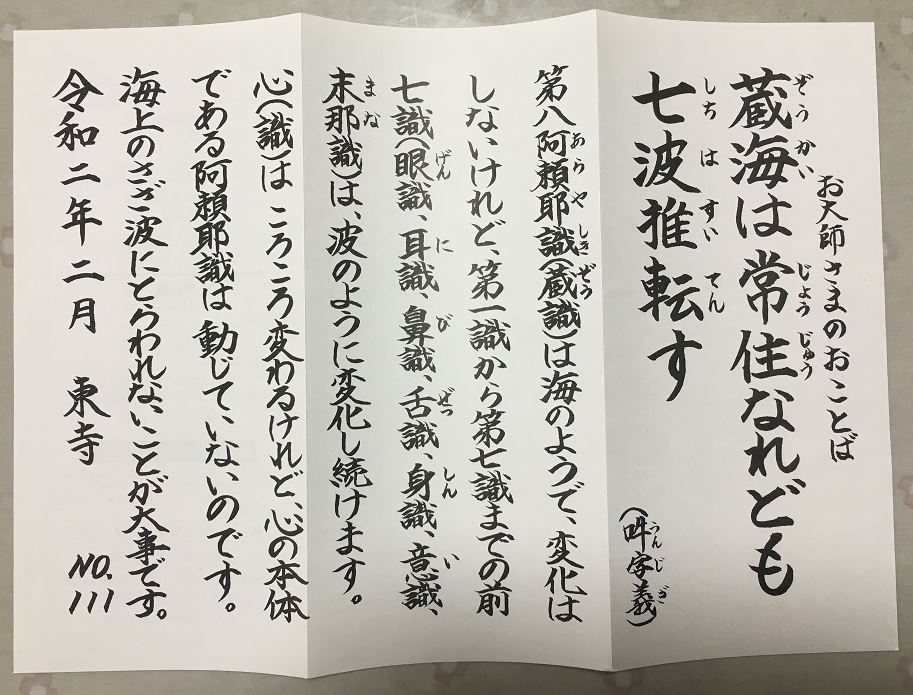 お大師さまのおことば
蔵海は常住なれども
七波推転す
(吽字義)
第八阿頼耶識(蔵識)は海のようで、変化は
しないけれど、第一識から第七識までの前
七識(眼識、耳識、鼻識、舌識、身識、意識、
末那識)は、波のように変化し続けます。
心(識)はころころ変わるけれど、心の本体
である阿頼耶識は動じていないのです。
海上のさざ波にとらわれないことが大事です。
令和二年二月 東寺
NO.111